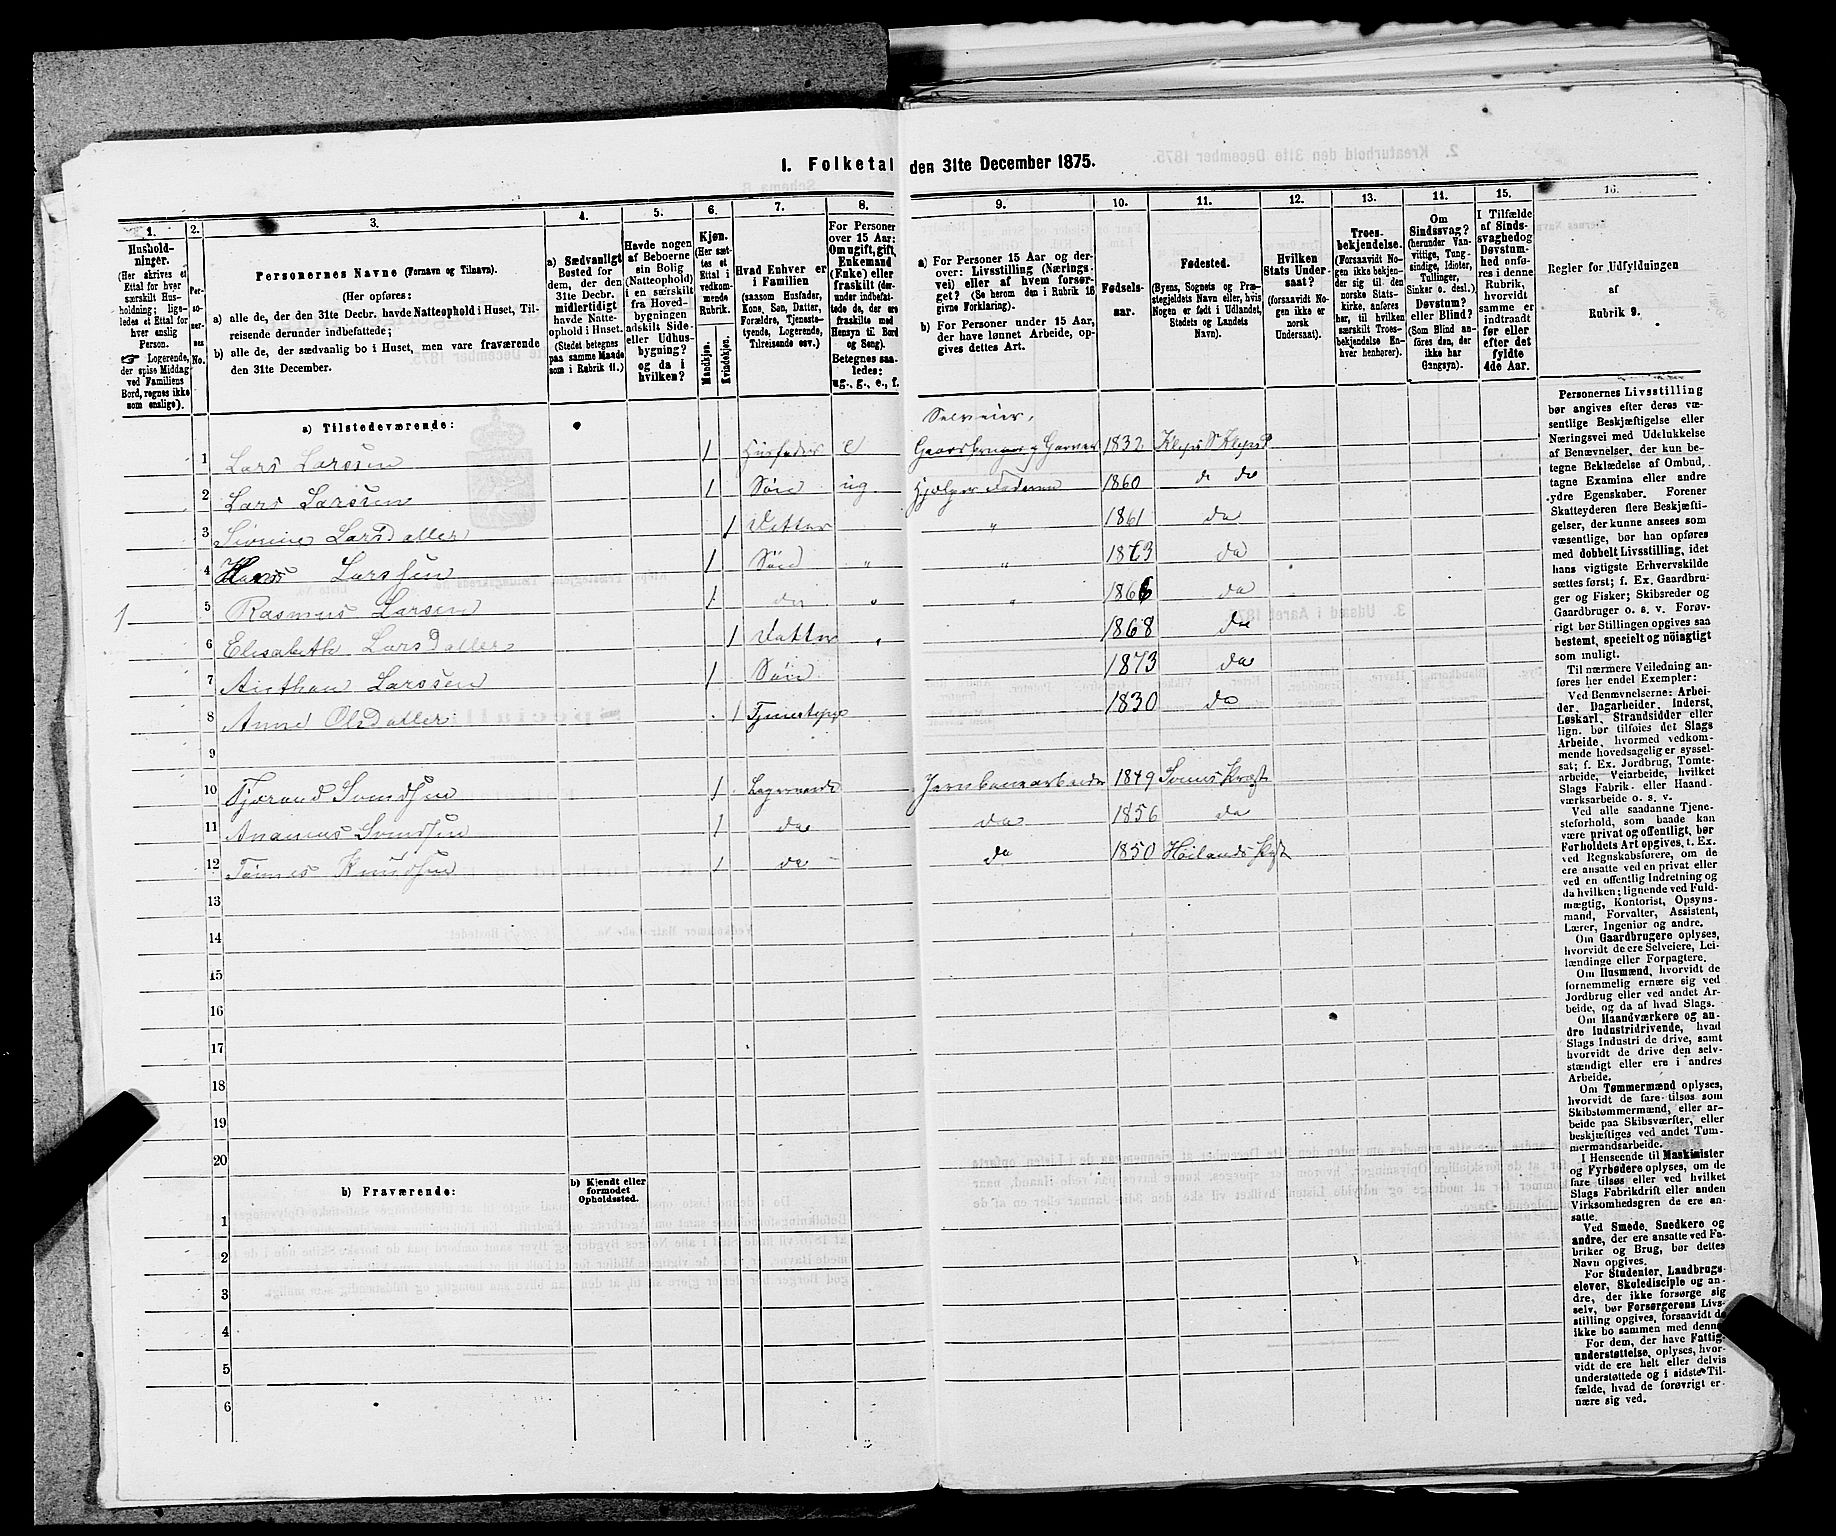 1. Folketal den 31te December 1875.
1. 2. 3. 4. 5. 6. 7. 8. 9. 10. 11. 12. 13. 14. 15. 16.
Hushold-
ninger.
(Her skrives et
Ettal for hver
særskilt Hus-
holdning; lige-
ledes et Ettal for
hver enslig
Person.
☞ Logerende,
der spise Middag
ved Familiens
Bord, regnes ikke
som enslige).
Per-
so-
ner-
nes
No.
Personernes Navne (Fornavn og Tilnavn).
(Her opføres:
a) alle de, der den 31te Decbr. havde Natteophold i Huset, Til-
reisende derunder indbefattede;
b) alle de, der sædvanlig bo i Huset, men vare fraværende
den 31te December.
a) Sædvanligt
Bosted for
dem, der den
31te Decbr.
midlertidigt
havde Natte-
ophold i Huset.
(Stedet betegnes
paa samme Maade
som i Rubrik 11.)
Havde nogen
af Beboerne
sin Bolig
(Natteophold)
i en særskilt
fra Hoved-
bygningen
adskilt Side-
eller Udhus-
bygning?
og da i
hvilken?
Kjøn.
(Her sæt-
tes et
Ettal i
vedkom-
mende
Rubrik.
Mandkjøn.
Kvindekjøn.
Hvad Enhver er
i Familien
(saasom Husfader,
Kone, Søn, Datter,
Forældre, Tjeneste-
tyende, Logerende,
Tilreisende osv.)
For Personer
over 15 Aar:
Om ugift, gift,
Enkemand
(Enke) eller
fraskilt (der-
under indbefat-
tede de, der ere
fraskilte med
Hensyn til Bord
og Seng).
Betegnes saa-
ledes:
ug., g., e., f.
a) For Personer 15 Aar og der-
over: Livsstilling (Nærings-
vei) eller af hvem forsør-
get? (Se herom den i Rubrik 16
givne Forklaring).
b) For Personer under 15 Aar,
der have lønnet Arbeide, op-
gives dettes Art.
Fødsels-
aar.
Fødested.
(Byens, Sognets og Præ-
stegjeldets Navn eller, hvis
Nogen er født i Udlandet,
Stedets og Landets
Navn).
Hvilken
Stats Under-
saat?
(forsaavidt No-
gen ikke er
norsk
Undersaat).
Troes-
bekjendelse.
(Forsaavidt No-
gen ikke bekjen-
der sig til den
norske Stats-
kirke, anføres
her, til hvilken
særskilt Troes-
bekjendelse En-
hver henhører).
Om
Sindssvag?
(herunder Van-
vittige, Tung-
sindige, Idioter,
Tullinger,
Sinker o. desl.).
Døvstum?
eller Blind?
(Som Blind an-
føres den, der
ikke har
Gangsyn).
I Tilfælde
af Sinds-
svaghed og
Døvstum-
hed onfø-
res i denne
Rubrik,
hvorvidt
samme er
indtraadt
før eller
efter det
fyldte
4de Aar.
Regler for Udfyldningen
af
Rubrik 9.
a) Tilstedeværende:
Selveier,
1 Lars Larssen 1 Husfader e Gaardbruger g Garver 1832 Klepps S Klepps P
2 Lars Larssen 1 Søn ug. Hjælper Faderen 1860 do do
3 Sivrine Larsdatter 1 Datter " 1861 do
4 Hans Larssen 1 Søn " " 1863 do
1
5 Rasmus Larsen 1 do " " 1866 do
6 Elisabeth Larsdatter 1 Datter " 1868 do
7 Anthon Larssen 1 Søn 1873 do
8 Anne Olsdatter 1 Tjenestepge 1830 do
9
10 Tjerand Svendsen 1 Logerende Jernbanearbeider 1849 Præst
11 Ananias Svendsen 1 do do 1856 do
12 Tønnes Knudsen 1 do do 1850 Høilands Pgst
13
14
15
16
17
18
19
20
b) Fraværende:
b) Kjendt eller
formodet
Opholdssted.
1
2
3
4
5
6
Personernes Livsstilling
bør angives efter deres væ-
sentlige Beskjæftigelse eller
Næringsvei med Udelukkelse
af Benævnelser, der kun be-
tegne Beklædelse af Ombud,
tagne Examina eller andre
ydre Egenskaber. Forener
Skatteyderen flere Beskjæfti-
gelser, der kunne ansees som
væsentlige, bør han opføres
med dobbelt Livsstilling, idet
hans vigtigste Erhvervskilde
sættes først; f. Ex. Gaardbru-
ger og Fisker; Skibsreder og
Gaardbruger o. s. v. Forøv-
rigt bør Stillingen opgives saa
bestemt, specielt og nöiagtigt
som muligt.
Til nærmere Veiledning an-
føres her endel Exempler:
Ved Benævnelserne: Arbei-
der, Dagarbeider, Inderst,
Løskarl, Strandsidder eller
lign. bør tilføies det Slags
Arbeide, hvormed vedkom-
mende hovedsagelig er syssel-
sat; f. Ex. Jordbrug, Tomte-
arbeide, Veiarbeide, hvilket
Slags Fabrik- eller Haand-
værksarbeide o. s. v.
Ved alle saadanne Tjene-
steforhold, som baade kan
være privat og offentligt, bør
Forholdets Art opgives, t. Ex.
ved Regnskabsførere, om de
ere ansatte ved en privat eller
ved en offentlig Indretning og
da hvilken; lignende ved Fuld-
mægtig, Kontorist, Opsyns-
mand, Forvalter, Assistent,
Lærer, Ingeniør og andre.
Om Gaardbrugere oplyses,
hvorvidt de ere Selveiere, Lei-
lændinge eller Forpagtere.
Om Husmænd, hvorvidt de
fornemmelig ernære sig ved
Jordbrug eller ved andet Ar-
beide, og da af hvad Slags.
Om Haandværkere og an-
dre Industridrivende, hvad
Slags Industri de drive, samt
hvorvidt de drive den selv-
stændigt eller ere i andres
Arbeide.
Om Tømmermænd oplyses,
hvorvidt de fare tilsøs som
Skibstømmermænd, eller ar-
beide paa Skibsværfter, eller
beskjæftiges ved andet Tøm-
mermandsarbeide.
I Henseende til Maskinister
og Fyrbødere oplyses, om de
fare tilsøs eller ved hvilket
Slags Fabrikdrift eller anden
Virksomhedsgren de ere an-
satte.
Ved Smede, Snedkere og
andre, der ere ansatte ved Fa-
briker og Brug, bør dettes
Navn opgives.
For Studenter, Landbrugs-
elever, Skoledisciple og an-
dre, der ikke forsørge sig
selv, bør Forsørgerens Livs-
stilling opgives, forsaavidt de
ikke bo sammen med denne.
For dem, der have Fattig-
understøttelse, oplyses, hvor-
vidt de ere helt eller delvis
understøttede og i sidste Til-
fælde, hvad de forøvrigt er-
nære sig ved.